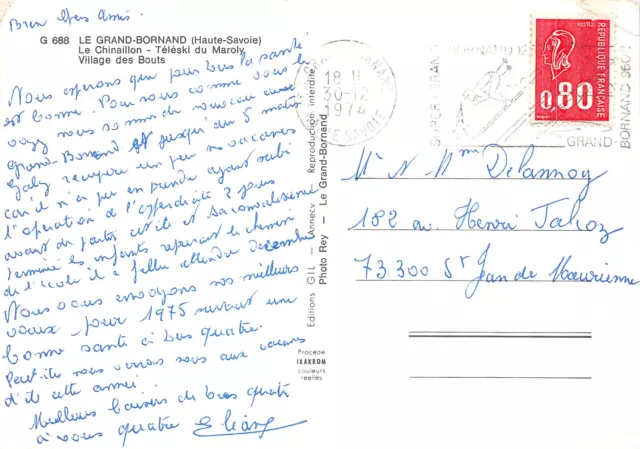 Bien chers Amis.
G 688 LE GRAND-BORNAND (Haute-Savoie)
Le Chinaillon - Téléski du Maroly
Village des Bouts
Nous espérons que pour tous la santé
est bonne. Pour nous comme vous le
voyez nous sommes de nouveau au
Grand-Bornand et jusqu'au 5 matin
Gaby récupère un peu ses vacances
car il n'a pu en prendre ayant subi
l'opération de l'appendicite 2 jours
avant de partir cet été et sa convalescence
terminée les enfants reprenant le chemin
de l'école il a fallu attendre décembre
Nous vous envoyons nos meilleurs
voeux pour 1975 surtout une
bonne santé à tous quatre.
Peut-être nous verrons nous aux vacances
d'été cette année.
Meilleurs baisers de tous quatre
à vous quatre Eliane
Editions GIL - Annecy - Reproduction interdite
Photo Rey - Le Grand-Bornand
Procédé
IXAKROM
couleurs
réelles
18 H
30-12
1974
SUPER GRAND BORNAND
GRAND-BORNAND
POSTES
REPUBLIQUE FRANÇAISE
0,80
Mr & Mme Delannoy
182 av. Henri Falcoz
73300 St Jean de Maurienne